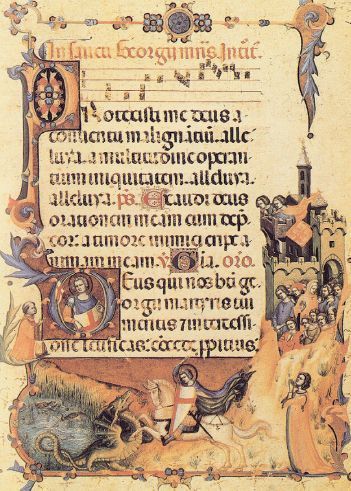 In sancti Georgij mr̃is Introit.
Protexisti me deus a
conuentu malignātiū. alle
luya. a multitudine operan
tium iniquitatem. alleluya.
alleluya. ps. Exaudi deus
orationem meam cum dep̄
cor. a timore inimici eripe a
nimam meam. V̄. Gl̄ia. oro.
Deus qui nos bt̄i ge
orgij martiris tui
meritis ⁊ intercessi
one letificas. concede ppitius